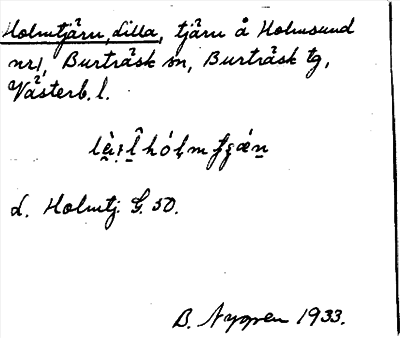 Holmtjärn, Lilla, tjärn å Holmsund
nr 1, Burträsk sn, Burträsk tg,
Västerb. l.
d. Holmtj. G. 50.
B. Nygren 1933.